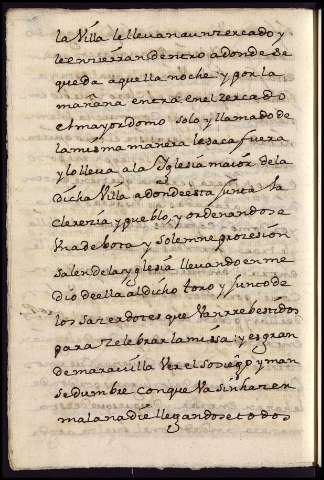 la Villa le llevan a un zercado y
le enzierran dentro a donde se
queda aquella noche y por la
mañana entra en el zercado
el mayordomo solo y llamado de
la misma manera le saca fuera
y lo lleva a la Yglesia maior dela
dicha Villa adonde esta junta la
clerezia y pueblo, y ordenandose
Vna debota y solemne prozesion
salen dela yglesia llevando en me
dio de ella al dicho toro y junto de
los sazerdotes que Van rrebestidos
para zelebrar la missa: y es gran
de maravilla Ver el sosiego y man
sedumbre con que Va sin hazer
mal a nadie llegandose todos